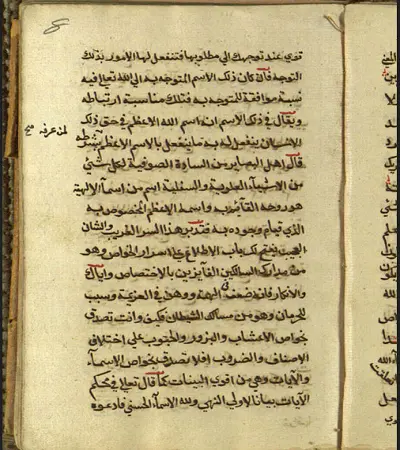 تقوي عند توجهك الي مطلوبها فتنفعل لها الامور بذلك
التوجه فان كان ذلك الاسم المتوجه به الي الله تعالي فيه
نسبة موافقة للمتوجه به فتلك مناسبة ارتباطه
ويقال في ذلك الاسم انه اسم الله الاعظم في حق ذلك
الانسان ينفعل له به ما ينفعل بالاسم الاعظم بشرطه
لمن عرفه صح
قال اهل البصاير من السادة الصوفية لكل شي
من الاشياء العلوية والسفلية اسم من اسماء الالهية
هو روحه القايم به واسمه الاعظم المخصوص به
الذي قيام وجوده به فتدبر هذا السر الغريب والشان
العجيب يفتح لك باب الاطلاع علي اسرار الخواص وهو
من مدارك السالكين الفايزين بالاختصاص واياك
والانكار فانه ضعف في الهمة ووهن في العزيمة وسبب
للحرمان وهو من مسالك الشيطان فكيف وانت تصدق
بخواص الاعشاب والبزور والحبوب علي اختلاف
الاصناف والضروب افلا تصدق بخواص الاسماء
والايات وهي من اقوي البينات كما قال تعالي في محكم
الايات بيانا لاولي النهي ولله الاسماء الحسني فادعوه